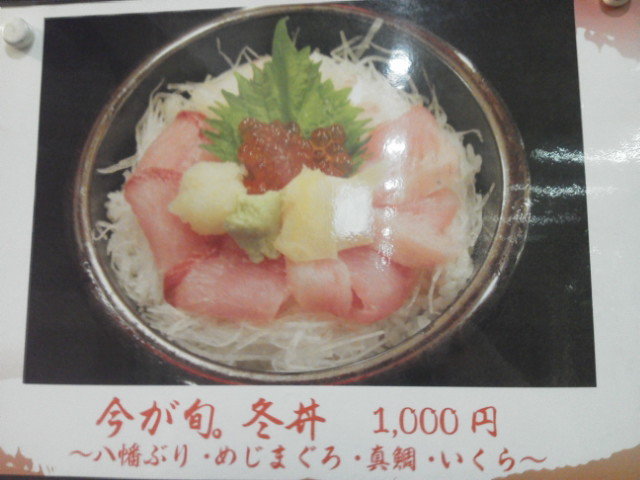 今が旬。冬丼 1,000円
～八幡ぶり・めじまぐろ・真鯛・いくら～